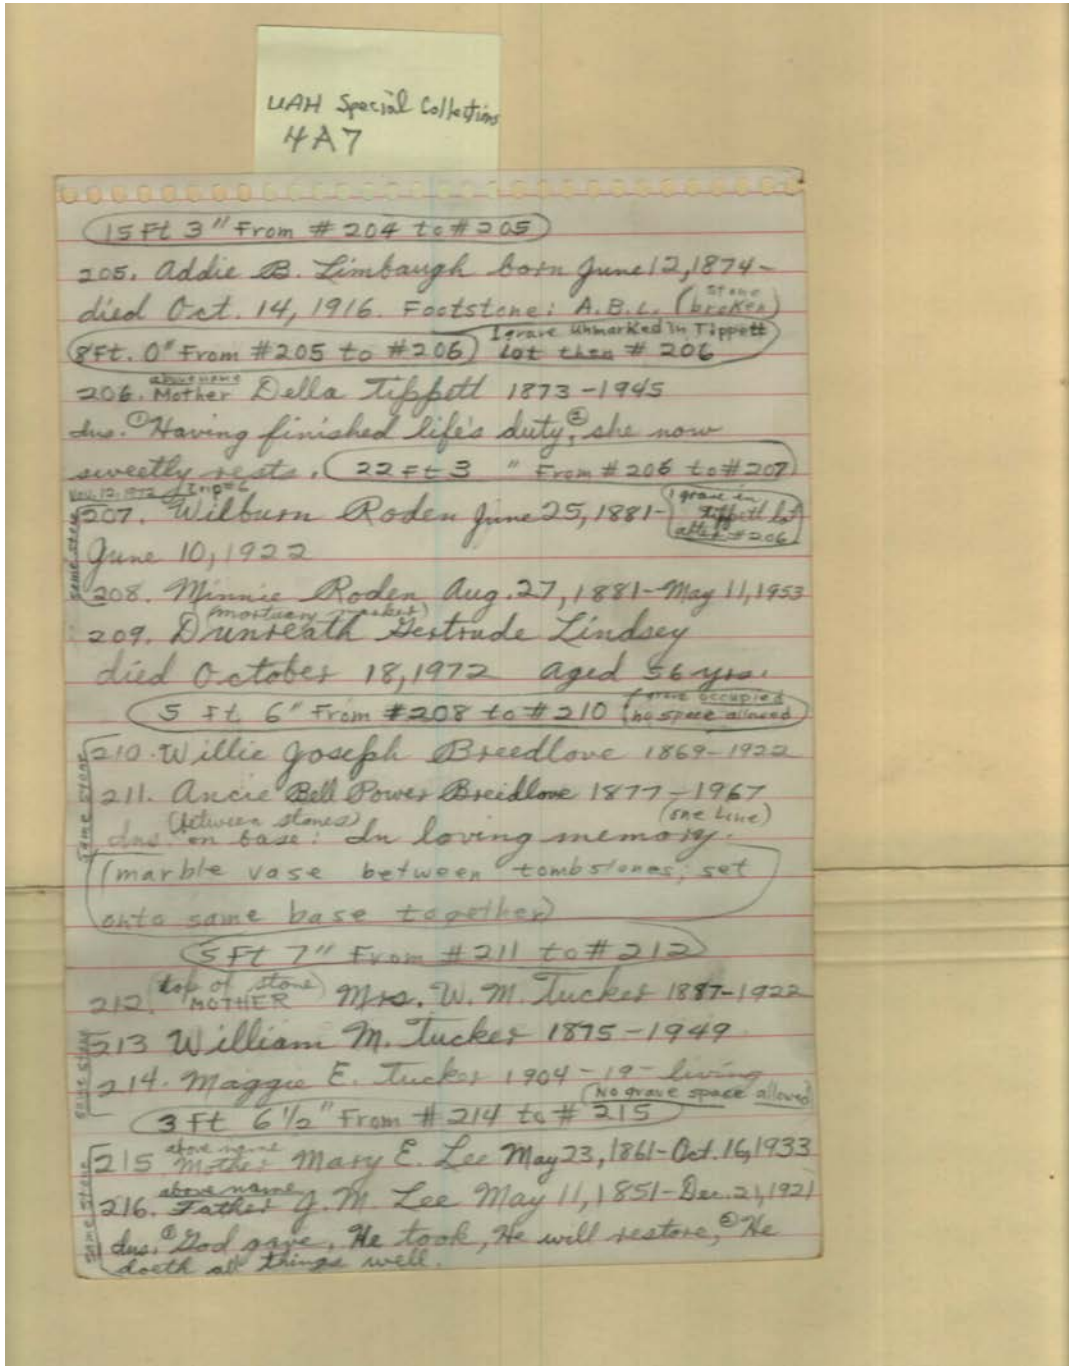 UAH Special Collections
4A7
15 Ft 3" From # 204 to # 205
205. Addie B. Limbaugh born June 12, 1874-
died Oct. 14, 1916. Footstone: A.B.L. (stone broken)
8 Ft. 0" From #205 to #206 1 grave unmarked in Tippett
lot then # 206
above name
206. Mother Della Tippett 1873-1945
Ins. ① Having finished life's duty, ② she now
sweetly rests. 22 Ft 3 " From # 206 to # 207
Nov. 12, 1972 trip #6
same stone
207. Wilburn Roden June 25, 1881- 1 grave in Tippett lot after # 206
June 10, 1922
208. Minnie Roden Aug. 27, 1881-May 11, 1953
(mortuary marker)
209. Dunreath Gertrude Lindsey
died October 18, 1972 aged 56 yrs.
5 Ft. 6" From #208 to #210 (grave occupied
no space allowed)
same stone
210. Willie Joseph Breedlove 1869-1922
211. Ancie Bell Power Breidlove 1877-1967
(between stones) (one line)
Ins. on base: In loving memory.
(marble vase between tombstones; set
onto same base together)
5 Ft 7" From #211 to # 212
(top of stone)
212. MOTHER Mrs. W. M. Tucker 1887-1922
same stone
213 William M. Tucker 1875-1949
214. Maggie E. Tucker 1904-19- living
(No grave space allowed)
3 Ft 6 1/2" From # 214 to # 215
same stone
above name
215 Mother Mary E. Lee May 23, 1861-Oct. 16, 1933
above name
216. Father J. M. Lee May 11, 1851-Dec. 21, 1921
Ins. ① God gave, He took, He will restore, ② He
doeth all things well.